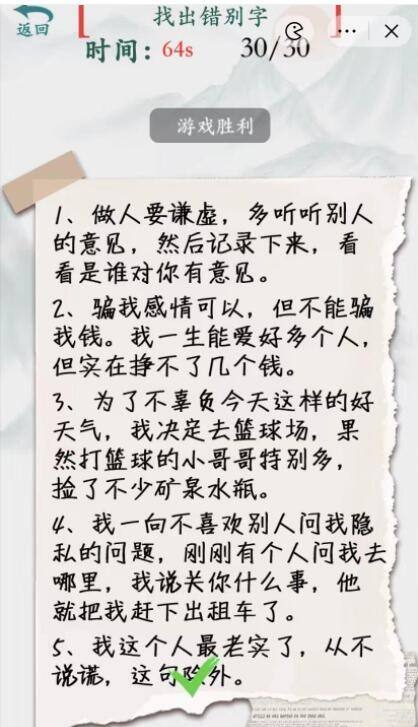 找出错别字
返回
时间：64s 30/30
游戏胜利
1、做人要谦虚，多听听别人
的意见，然后记录下来，看
看是谁对你有意见。
2、骗我感情可以，但不能骗
我钱。我一生能爱好多个人，
但实在挣不了几个钱。
3、为了不辜负今天这样的好
天气，我决定去篮球场，果
然打篮球的小哥哥特别多，
捡了不少矿泉水瓶。
4、我一向不喜欢别人问我隐
私的问题，刚刚有个人问我去
哪里，我说关你什么事，他
就把我赶下出租车了。
5、我这个人最老实了，从不
说谎，这句除外。